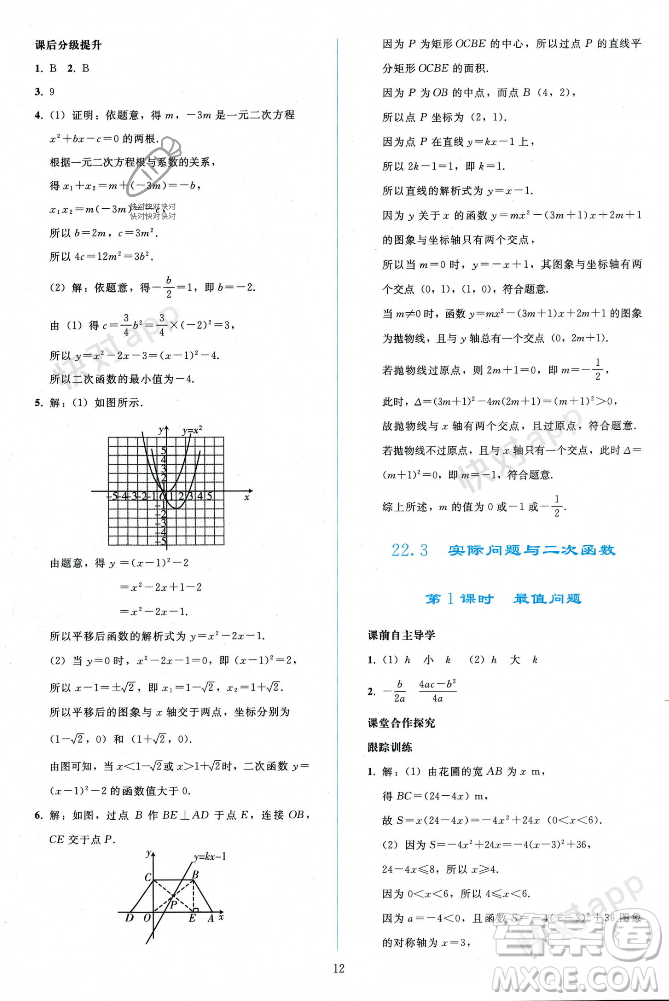 课后分级提升
1. B 2. B
3. 9
4. (1) 证明：依题意，得 m，−3m 是一元二次方程
x²+bx−c=0 的两根.
根据一元二次方程根与系数的关系，
得 x₁+x₂=m+(−3m)=−b，
x₁x₂=m(−3m)=−c，
所以 b=2m，c=3m².
所以 4c=12m²=3b².
(2) 解：依题意，得−b/2=1，即 b=−2.
由 (1) 得 c=3/4b²=3/4×(−2)²=3，
所以 y=x²−2x−3=(x−1)²−4.
所以二次函数的最小值为−4.
5. 解：(1) 如图所示.
y y=x²
5
4
3
2
1
-5-4-3-2-1O 1 2 3 4 5 x
由题意，得 y=(x−1)²−2
=x²−2x+1−2
=x²−2x−1.
所以平移后函数的解析式为 y=x²−2x−1.
(2) 当 y=0 时，x²−2x−1=0，即 (x−1)²=2，
所以 x−1=±√2，即 x₁=1−√2，x₂=1+√2.
所以平移后的图象与 x 轴交于两点，坐标分别为
(1−√2，0) 和 (1+√2，0).
由图可知，当 x<1−√2或 x>1+√2时，二次函数 y=
(x−1)²−2 的函数值大于 0.
6. 解：如图，过点 B 作 BE⊥AD 于点 E，连接 OB，
CE 交于点 P.
y y=kx−1
C B
P
D O E A x
因为 P 为矩形 OCBE 的中心，所以过点 P 的直线平
分矩形 OCBE 的面积.
因为 P 为 OB 的中点，而点 B (4，2)，
所以点 P 坐标为 (2，1).
因为点 P 在直线 y=kx−1 上，
所以 2k−1=1，即 k=1.
所以直线的解析式为 y=x−1.
因为 y 关于 x 的函数 y=mx²−(3m+1)x+2m+1
的图象与坐标轴只有两个交点，
所以当 m=0 时，y=−x+1，其图象与坐标轴有两
个交点 (0，1)，(1，0)，符合题意.
当 m≠0 时，函数 y=mx²−(3m+1)x+2m+1 的图象
为抛物线，且与 y 轴总有一个交点 (0，2m+1).
若抛物线过原点，则 2m+1=0，即 m=−1/2，
此时，Δ=(3m+1)²−4m(2m+1)=(m+1)²>0，
故抛物线与 x 轴有两个交点且过原点，符合题意.
若抛物线不过原点，且与 x 轴只有一个交点，此时 Δ=
(m+1)²=0，即 m=−1，符合题意.
综上所述，m 的值为 0 或−1 或−1/2.
22.3 实际问题与二次函数
第 1 课时 最值问题
课前自主导学
1. (1) h 小 k (2) h 大 k
2. −b/2a 4ac−b²/4a
课堂合作探究
跟踪训练
1. 解：(1) 由花圃的宽 AB 为 x m，
得 BC=(24−4x) m，
故 S=x(24−4x)=−4x²+24x(0<x<6).
(2) 因为 S=−4x²+24x=−4(x−3)²+36，
24−4x≤8，所以 x≥4.
因为 0<x<6，所以 4≤x<6.
因为 a=−4<0，且函数 S=−4(x−3)²+36 图象
的对称轴为 x=3，
12
快对快对快对
快对快对快对
快对app
快对app
快对app
快对app
作业精灵
答案圈
MXQE.COM